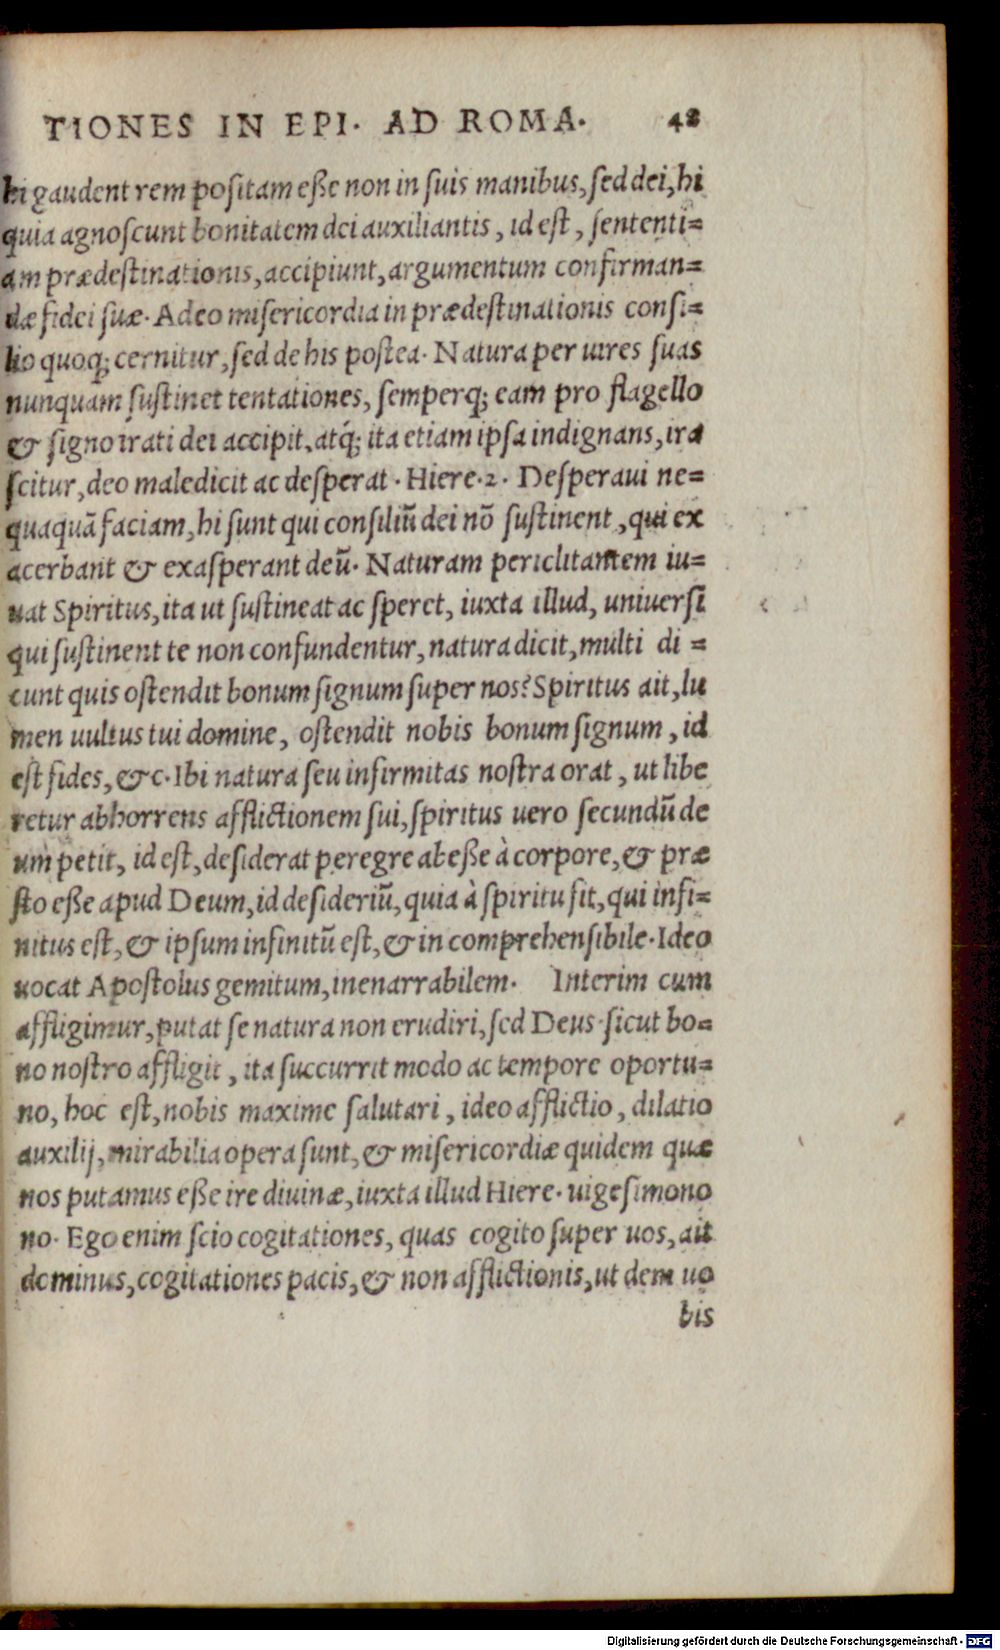 TIONES IN EPI. AD ROMA. 48
hi gaudent rem positam eſſe non in ſuis manibus, ſed dei, hi
quia agnoſcunt bonitatem dei auxiliantis, id eſt, ſententi=
am prædeſtinationis, accipiunt, argumentum confirman=
dæ fidei ſuæ. Adeo miſericordia in prædeſtinationis conſi=
lio quoq; cernitur, ſed de his poſtea. Natura per uires ſuas
nunquam ſuſtinet tentationes, ſemperq; eam pro flagello
& ſigno irati dei accipit, atq́; ita etiam ipſa indignans, ira
ſcitur, deo maledicit ac deſperat. Hiere. 2. Deſperaui ne=
quaquā faciam, hi ſunt qui conſiliū dei nō ſuſtinent, qui ex
acerbant & exaſperant deū. Naturam periclitantem iu=
uat Spiritus, ita ut ſuſtineat ac ſperet, iuxta illud, uniuerſi
qui ſuſtinent te non confundentur, natura dicit, multi di =
cunt quis oſtendit bonum ſignum ſuper nos? Spiritus ait, lu
men uultus tui domine, oſtendit nobis bonum ſignum, id
eſt fides, &c. Ibi natura ſeu infirmitas noſtra orat, ut libe
retur abhorrens afflictionem ſui, ſpiritus uero ſecundū de
um petit, id eſt, deſiderat peregre abeſſe à corpore, & præ
ſto eſſe apud Deum, id deſideriū, quia à ſpiritu fit, qui infi=
nitus eſt, & ipſum infinitū eſt, & incomprehenſibile. Ideo
uocat Apoſtolus gemitum, inenarrabilem. Interim cum
affligimur, putat ſe natura non erudiri, ſed Deus ſicut bo=
no noſtro affligit, ita ſuccurrit modo ac tempore oportu=
no, hoc eſt, nobis maxime ſalutari, ideo afflictio, dilatio
auxilij, mirabilia opera ſunt, & miſericordiæ quidem quæ
nos putamus eſſe ire diuinæ, iuxta illud Hiere. uigeſimono
no. Ego enim ſcio cogitationes, quas cogito ſuper uos, ait
dominus, cogitationes pacis, & non afflictionis, ut dem uo
bis
Digitalisierung gefördert durch die Deutsche Forschungsgemeinschaft - DFG